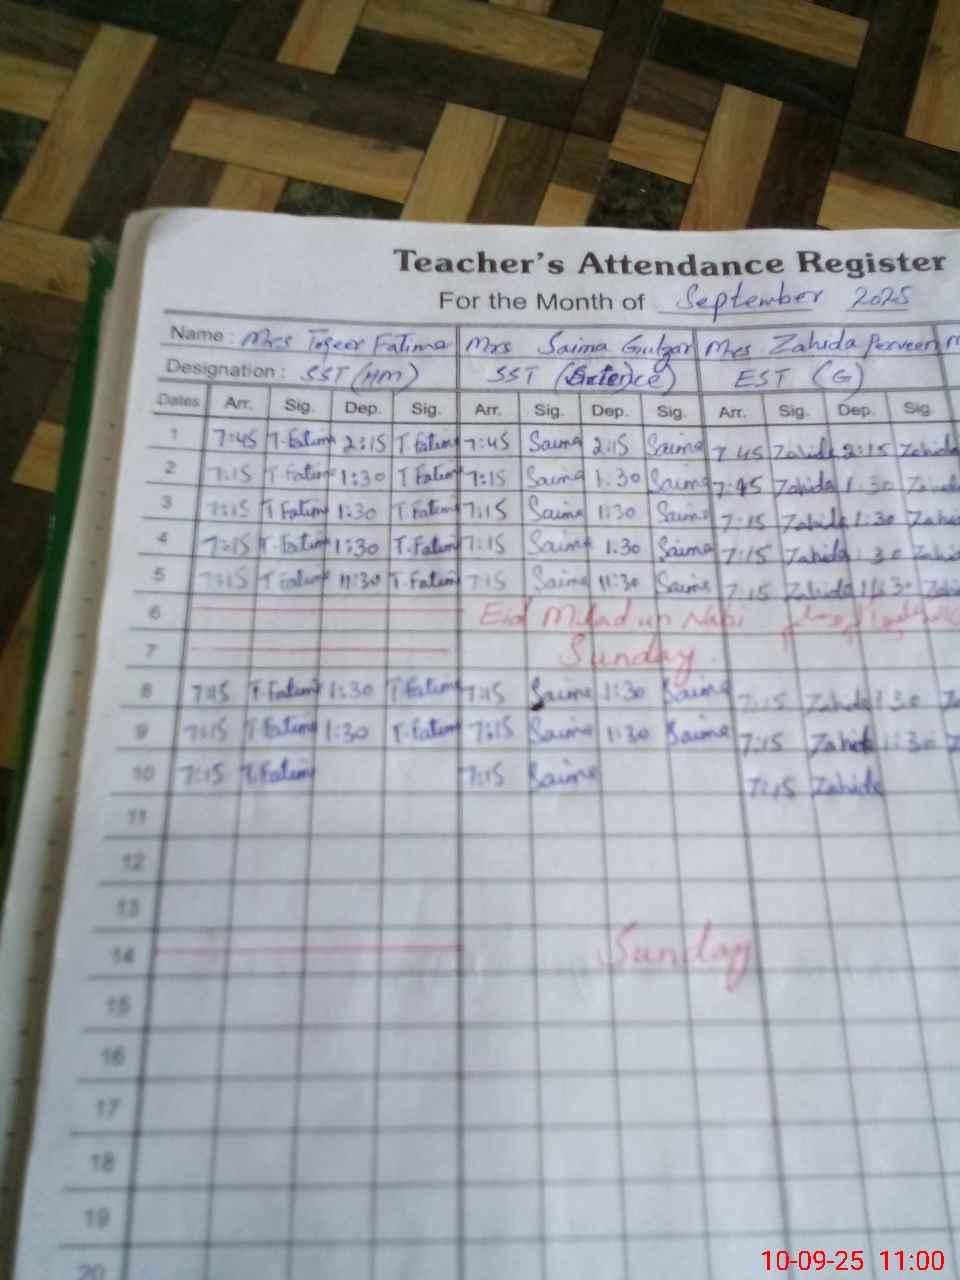 Teacher's Attendance Register
For the Month of September 2025
Name : Mrs Toqeer Fatima Mrs Saima Gulzar Mrs Zahida Perveen
Designation : SST (HM) SST (Science) EST (G)
Dates Arr. Sig. Dep. Sig. Arr. Sig. Dep. Sig. Arr. Sig. Dep. Sig.
1 7:45 T.Fatima 2:15 T.Fatima 7:45 Saima 2:15 Saima 7:45 Zahida 2:15 Zahida
2 7:15 T.Fatima 1:30 T.Fatima 7:15 Saima 1:30 Saima 7:45 Zahida 1:30 Zahida
3 7:15 T.Fatima 1:30 T.Fatima 7:15 Saima 1:30 Saima 7:15 Zahida 1:30 Zahid
4 7:15 T.Fatima 1:30 T.Fatima 7:15 Saima 1:30 Saima 7:15 Zahida 1:30 Zahid
5 7:15 T.Fatima 11:30 T.Fatima 7:15 Saima 11:30 Saima 7:15 Zahida 11:30 Zahi
6 Eid Milad un Nabi
7 Sunday
8 7:15 T.Fatima 1:30 T.Fatima 7:15 Saima 1:30 Saima 7:15 Zahida 1:30 Za
9 7:15 T.Fatima 1:30 T.Fatima 7:15 Saima 1:30 Saima 7:15 Zahida 1:30 Z
10 7:15 T.Fatima 7:15 Saima 7:15 Zahida
11
12
13
14 Sunday
15
16
17
18
19
20
10-09-25 11:00